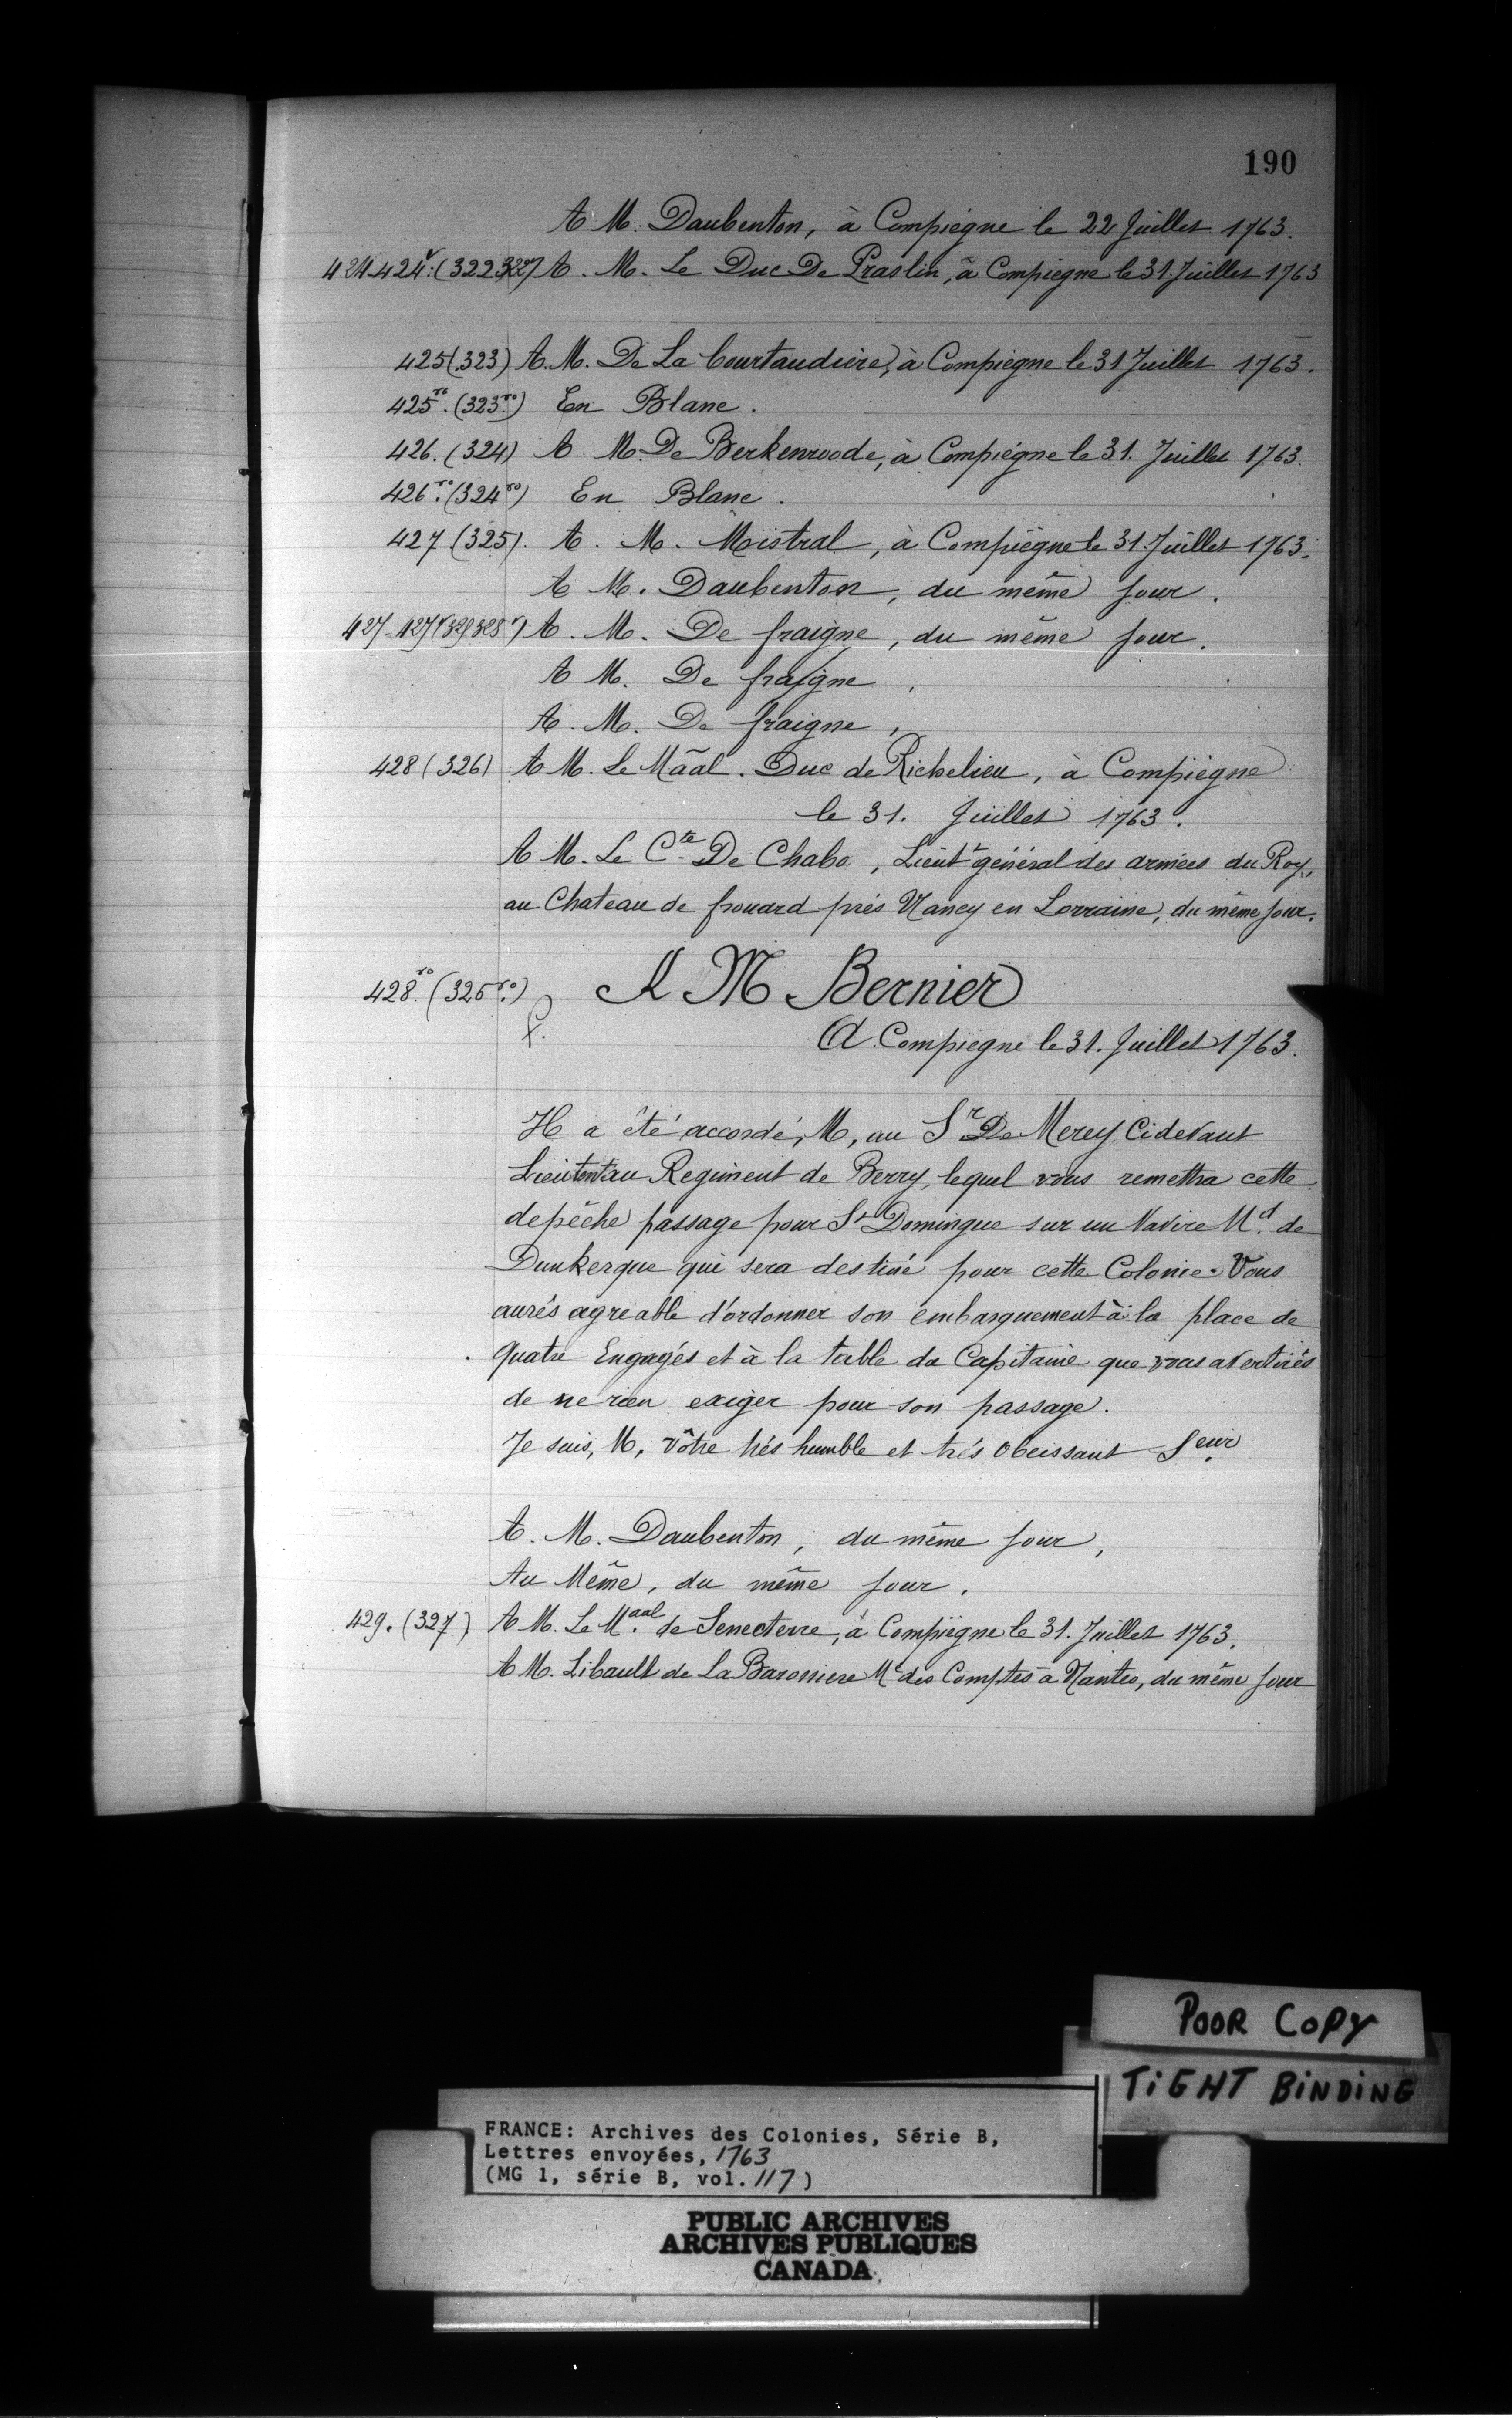 190
A M. Daubenton, à Compiégne le 22 Juillet 1763.
424-424v. (322 322v) A. M. Le Duc De Praslin, à Compiegne le 31. Juillet 1763
425 (323) A. M. De La Courtaudière, à Compiègne le 31 Juillet 1763.
425ro. (323ro) En Blanc.
426. (324) A M. De Berkenroode, à Compiégne le 31. Juillet 1763.
426ro. (324ro) En Blanc.
427 (325). A. M. Mistral, à Compiègne le 31. Juillet 1763.
A M. Daubenton, du même jour.
427-427 A. M. De fraigne, du même jour.
A M. De fraigne,
A. M. De fraigne,
428 (326) A M. Le Mãal. Duc de Richelieu, à Compiègne
le 31. Juillet 1763.
A M. Le Cte. De Chabo, Lieutt général des armées du Roy,
au Chateau de frouard prés Nancy en Lorraine, du même jour.
428ro. (326ro.) A M Bernier
A Compiegne le 31. Juillet 1763.
Il a été accordé, M, au Sr De Merey Cidevant
Lieutent au Regiment de Berry, lequel vous remettra cette
depêche passage pour St Domingue sur un Navire Md. de
Dunkerque qui sera destiné pour cette Colonie. Vous
aurés agreable d'ordonner son embarquement à la place de
quatre Engagés et à la table du Capitaine que vous avertirés
de ne rien exiger pour son passage.
Je suis, M, vôtre trés humble et trés obeissant Seur.
A. M. Daubenton, du même jour,
Au Même, du même jour.
429. (327) A M. Le Maal. de Senecterre, à Compiègne le 31. Juillet 1763.
A M. Libault de La Barossiere Me des Comptes à Nantes, du même jour
POOR COPY
TIGHT BINDING
FRANCE: Archives des Colonies, Série B,
Lettres envoyées, 1763
(MG 1, série B, vol. 117)
PUBLIC ARCHIVES
ARCHIVES PUBLIQUES
CANADA